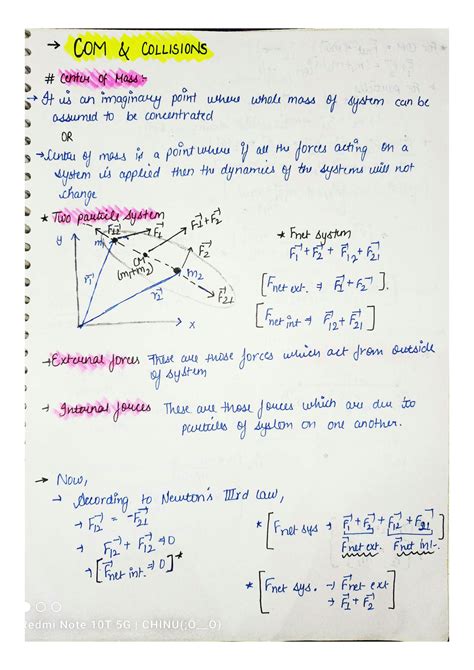 → COM & COLLISIONS
# Center of Mass :-
→ It is an imaginary point where whole mass of system can be
assumed to be concentrated
OR
→ Center of mass is a point where if all the forces acting on a
system is applied then the dynamics of the systems will not
change
* Two particle system
y
m₁
F₁₂→
F₁→
F₁→+F₂→
F₂→
CM
(m₁+m₂)
m₂
r₁→
r₂→
F₂₁→
x
* Fnet system
F₁→ + F₂→ + F₁₂→ + F₂₁→
[Fnet ext. ⇒ F₁→ + F₂→]
[Fnet int ⇒ F₁₂→ + F₂₁→]
→ External forces These are those forces which act from outside
of system
→ Internal forces These are those forces which are due to
particles of system on one another.
→ Now,
→ According to Newton's IIIrd law,
→ F₁₂→ = -F₂₁→
→ F₁₂→ + F₁₂→ ⇒ 0
→ [F→net int. ⇒ 0] *
* [Fnet sys → F₁→ + F₂→ + F₁₂→ + F₂₁→
Fnet ext. Fnet int.]
* [Fnet sys. → F→net ext
→ F₁→ + F₂→]
Redmi Note 10T 5G | CHINU(;O__O)